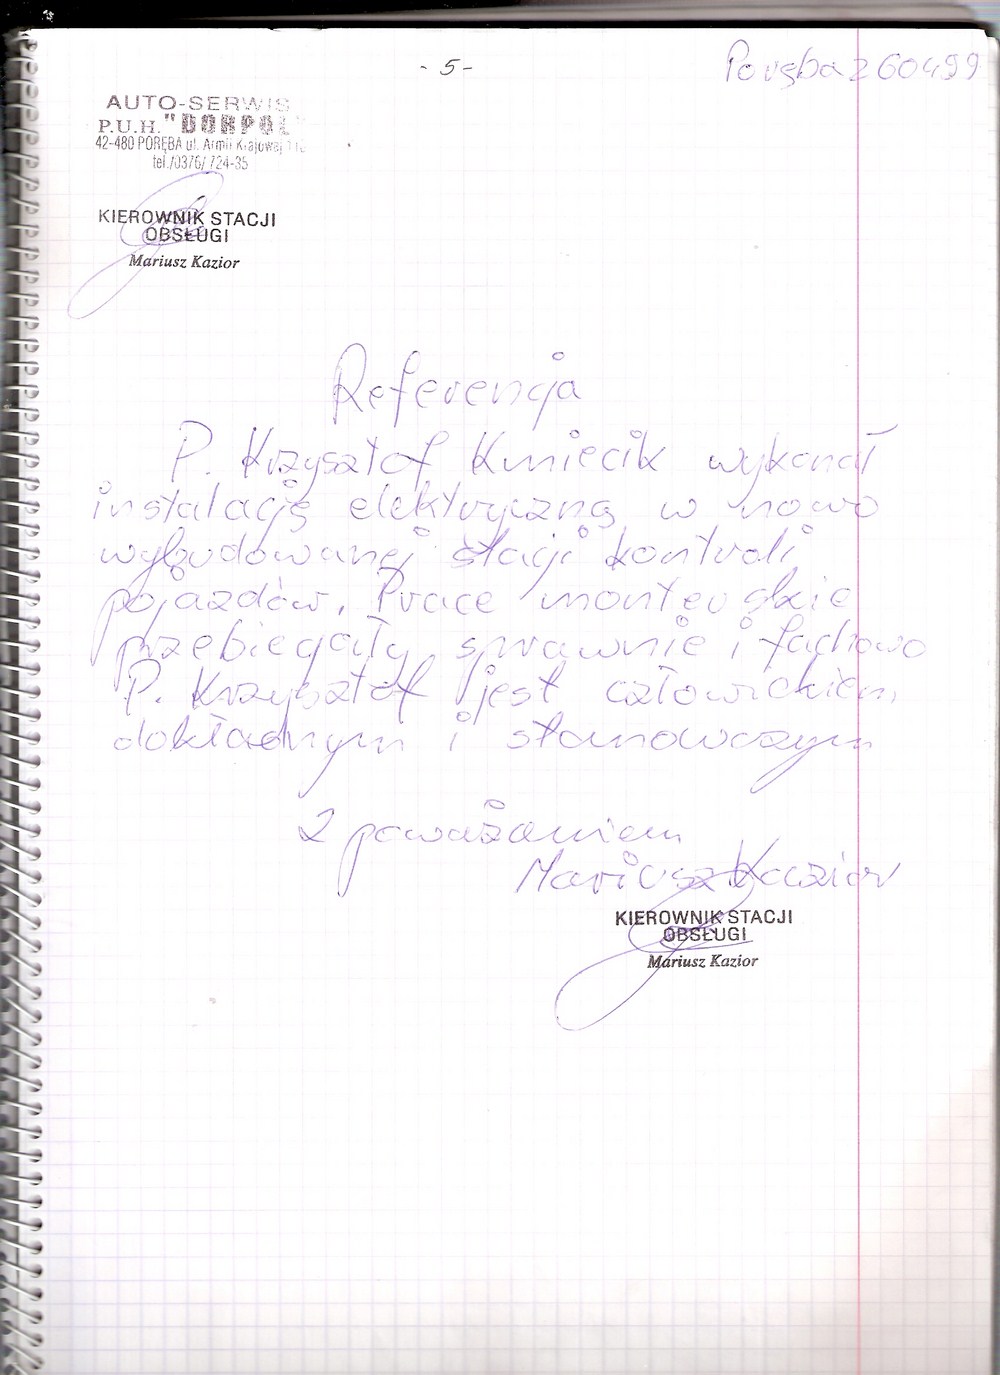 - 5 -
Poręba 260499
AUTO-SERWIS
P.U.H. "DORPOL"
42-480 PORĘBA ul. Armii Krajowej
tel./0376/ 724-35
KIEROWNIK STACJI
OBSŁUGI
Mariusz Kazior
Referencja
P. Krzysztof Kmiecik wykonał
instalację elektryczną w nowo
wybudowanej stacji kontroli
pojazdów. Prace monterskie
przebiegały sprawnie i fachowo
P. Krzysztof jest człowiekiem
dokładnym i stanowczym
Z poważaniem
Mariusz Kazior
KIEROWNIK STACJI
OBSŁUGI
Mariusz Kazior